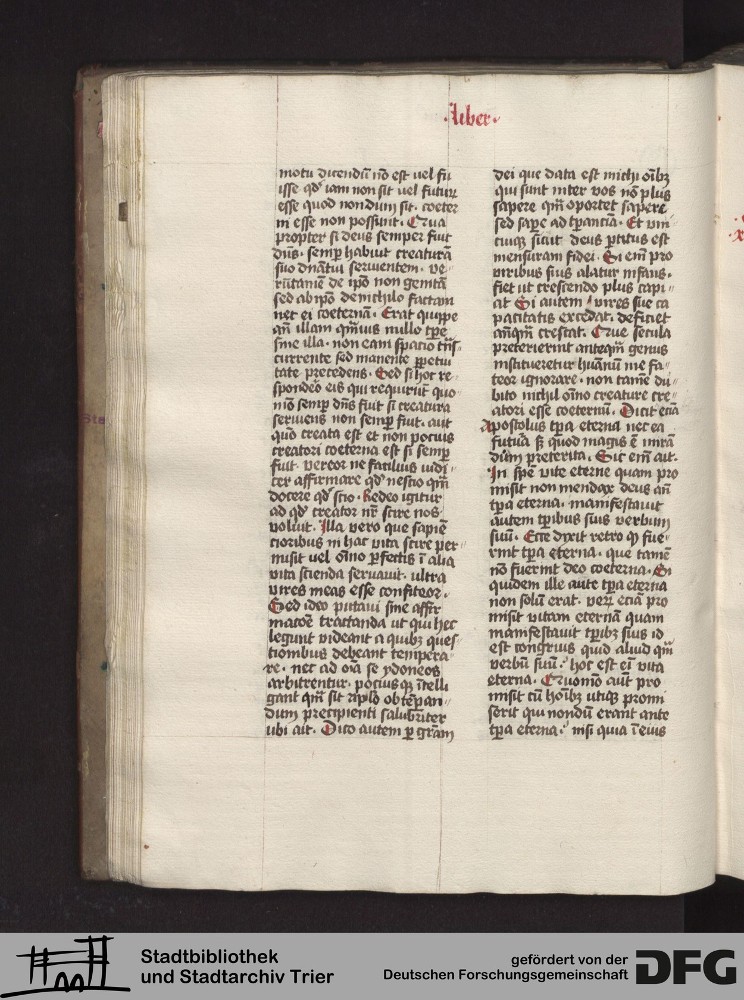 ·Liber·
motu dicendū nō est vel fu
isse qd' iam non sit vel futur
esse quod nondum sit· coeter
ni esse non possunt· Qua
propter si deus semper fuit
dn̄s· semp̄ habuit creaturā
suo dn̄atui seruientem· ve
rūtamē de ip̄o non genitā
sed ab ip̄o de nichilo factam
nec ei coeternā· Erat quippe
an̄ illam qm̄uis nullo tp̄e
sine illa· non eam spacio
currente sed manente p̄petui
tate precedens· Sed si hoc re
spondeo eis qui requirūt quo
mō semp̄ dn̄s fuit si creatura
seruiens non semp̄ fuit· aut
quō creata est et non pocius
creatori coeterna est si semp̄
fuit· vereor ne facilius iudi
cer affirmare qd' nescio qm̄
docere qd' scio· Redeo igitur
ad qd' creator nr̄ scire nos
voluit· Illa vero que sapiē
cioribus in hac vita scire per
misit vel om̄ino p̄fectis ī alia
vita scienda seruauit· ultra
vires meas esse confiteor·
Sed ideo putaui sine affir
macōe tractanda ut qui hec
legunt videant a quibꝫ ques
tionibus debeant tempera
re· nec ad oīa se ydoneos
arbitrentur· pociusqꝫ ītelli
gant qm̄ sit ap̄lo obtēpan
dum precipienti salubriter
ubi ait· Dico autem p̱ gr̄am
dei que data est michi oīb̄ꝫ
qui sunt inter vos nō plus
sapere qm̄ oportet sapere
sed sape ad tp̄antiā· Et vni
cuiqꝫ sicut deus p̄titus est
mensuram fidei· Si em̄ pro
viribus suis alatur infans·
fiet ut crescendo plus capi
at Si autem vires sue ca
pacitatis excedat· deficiet
anq̄m crescat· Que secula
preterierint anteqm̄ genus
institueretur hūanū me fa
teor ignorare· non tamē du
bito nichil om̄ino creature cre
atori esse coeternū· Dicit eciā
Apostolus tp̄a eterna nec ea
futura sꝫ quod magis ē mirā
dum preterita· Sic em̄ ait·
In spē vite eterne quam pro
misit non mendax deus an̄
tp̄a eterna· manifestauit
autem tp̄ibus suis verbum
suū· Ecce dixit retro qꝫ fue
rint tp̄a eterna· que tamē
nō fuerint deo coeterna· Si
quidem ille ante tp̄a eterna
non solū erat· verꝫ eciā pro
misit vitam eternā quam
manifestauit tp̄ibꝫ suis id
est congruis quid aliud qm̄
verbū suū· hoc est eī vita
eterna· Quomō aut̄ pro
misit cū hoībꝫ utiqꝫ promi
serit qui nondū erant ante
tp̄a eterna· nisi quia ī eius
Stadtbibliothek
und Stadtarchiv Trier
gefördert von der
Deutschen Forschungsgemeinschaft
DFG